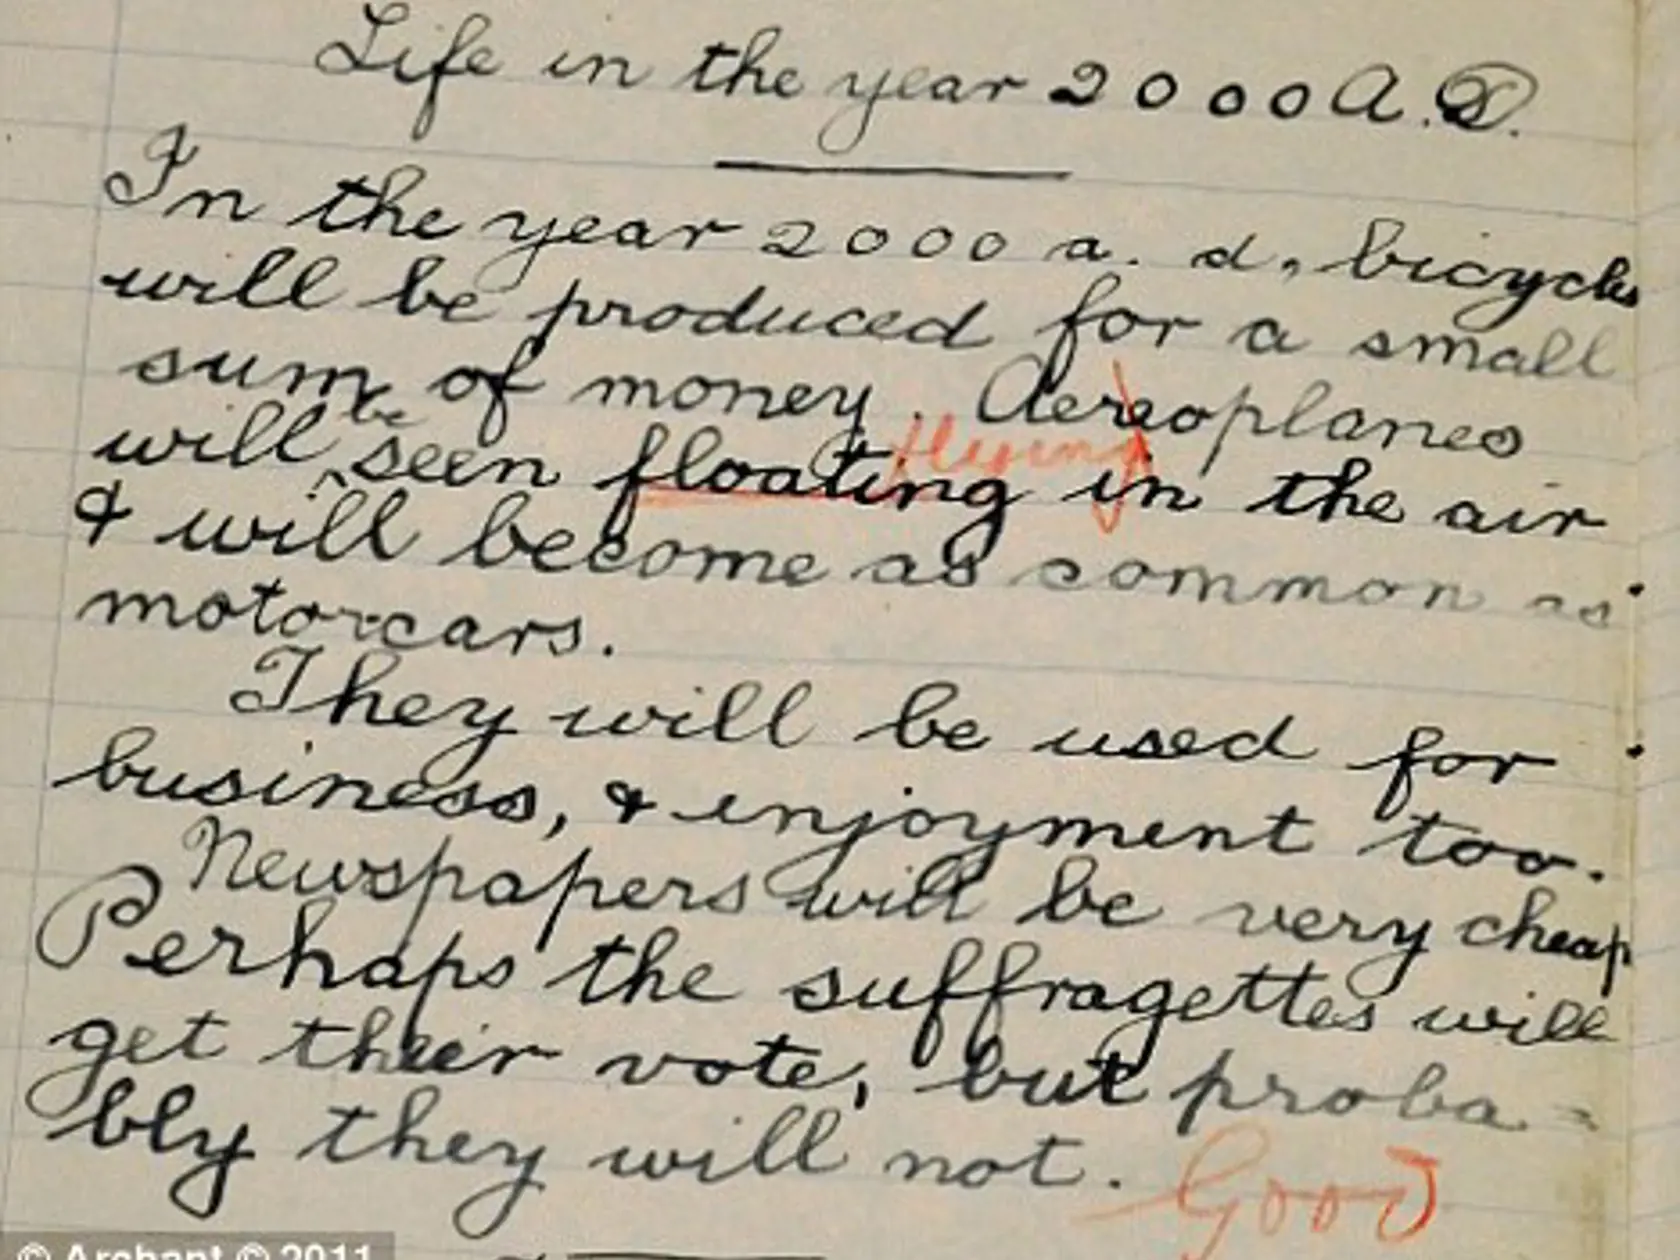 Life in the year 2000 A.D.
In the year 2000 a. d, bicycles
will be produced for a small
sum of money. Aereoplanes
be flying
will seen floating in the air
& will become as common as
motor-cars.
They will be used for
business, & enjoyment too.
Newspapers will be very cheap
Perhaps the suffragettes will
get their vote, but proba-
bly they will not. Good
© Archant © 2011